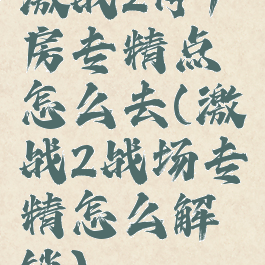 激战2得个
房专精点
怎么去(激
战2战场专
精怎么解
锁)